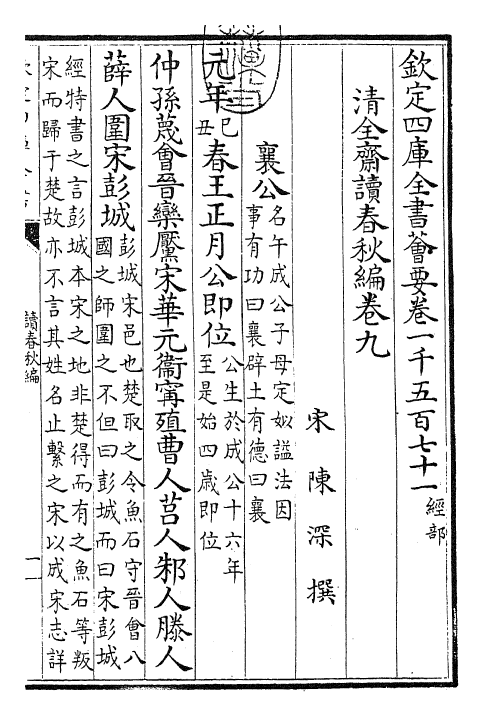 欽定四庫全書薈要卷一千五百七十一 經部
清全齋讀春秋編卷九
宋 陳 深 撰
襄公 名午成公子母定姒諡法因
事有功曰襄辟土有德曰襄
元年 己丑 春王正月公即位 公生於成公十六年
至是始四歲即位
仲孫蔑會晉欒黶宋華元衞甯殖曹人莒人邾人滕人
薛人圍宋彭城 彭城宋邑也楚取之令魚石守晉會八
國之師圍之不但曰彭城而曰宋彭城
經特書之言彭城本宋之地非楚得而有之魚石等叛
宋而歸于楚故亦不言其姓名止繫之宋以成宋志詳
讀春秋編
一